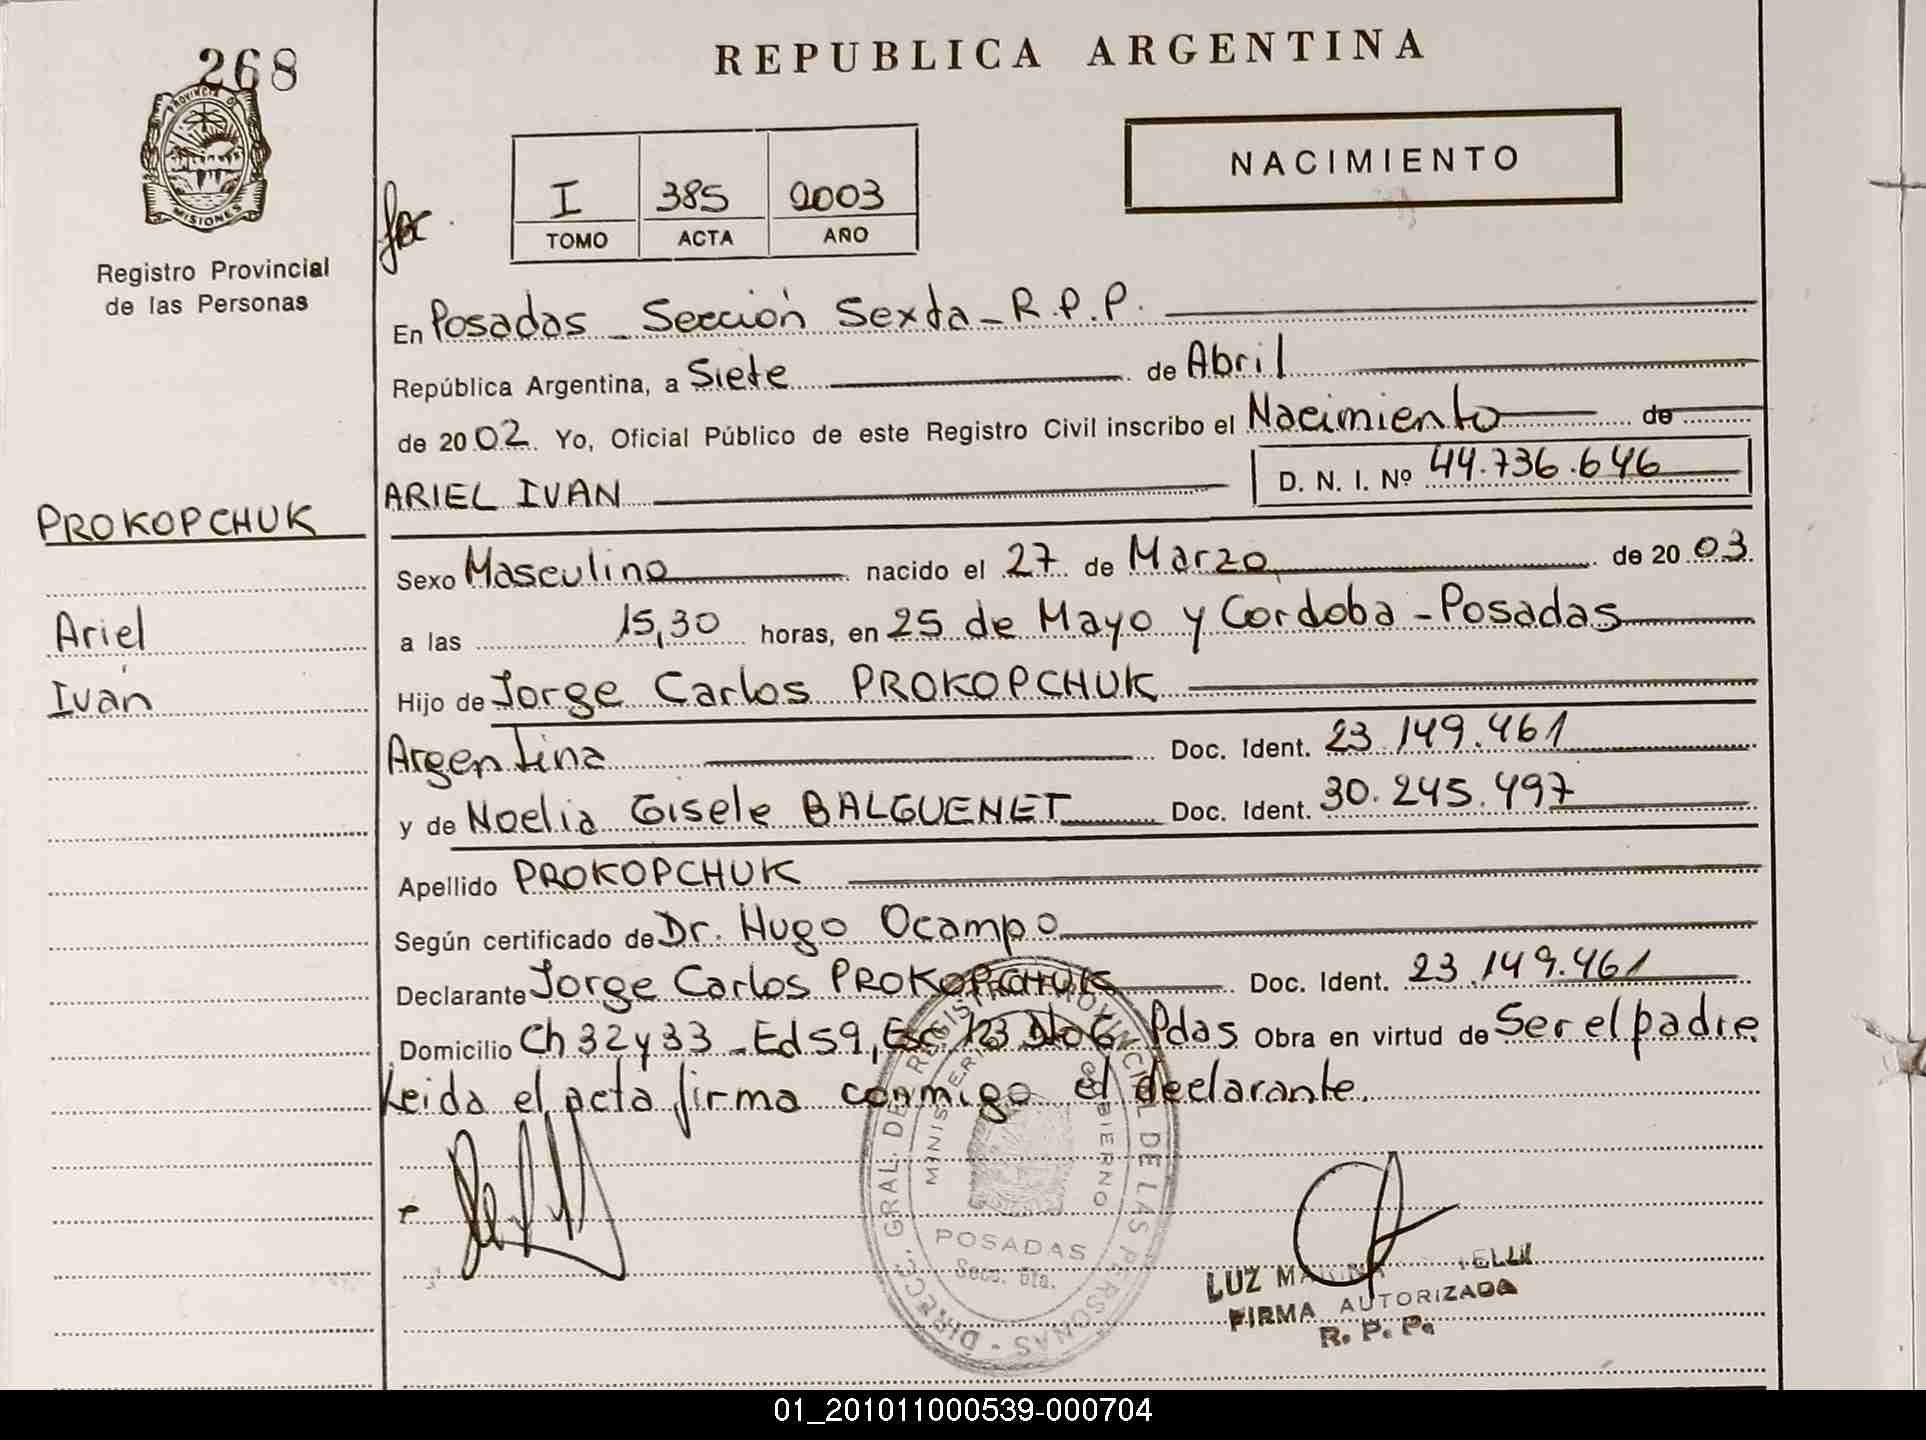 268
PROVINCIA DE
MISIONES
Registro Provincial
de las Personas
REPUBLICA ARGENTINA
NACIMIENTO
I 385 2003
TOMO ACTA AÑO
En Posadas - Sección Sexta - R.P.P.
República Argentina, a Siete de Abril
de 2002. Yo, Oficial Público de este Registro Civil inscribo el Nacimiento de
ARIEL IVAN D. N. I. Nº 44.736.646
PROKOPCHUK
Ariel
Iván
Sexo Masculino nacido el 27 de Marzo de 2003.
a las 15,30 horas, en 25 de Mayo y Cordoba - Posadas
Hijo de Jorge Carlos PROKOPCHUK
Argentina Doc. Ident. 23.149.461
y de Noelia Gisele BALGUENET Doc. Ident. 30.245.497
Apellido PROKOPCHUK
Según certificado de Dr. Hugo Ocampo
Declarante Jorge Carlos PROKOPCHUK Doc. Ident. 23.149.461
Domicilio Ch 32 y 33 - Ed 59, Esc 123 Pdas Obra en virtud de Ser el padre.
Leida el acta firma conmigo el declarante.
DIRECC. GRAL. DEL REGISTRO PROVINCIAL DE LAS PERSONAS
MINISTERIO GOBIERNO
POSADAS
Secc. 6ta.
LUZ
FIRMA AUTORIZADA
R. P. P.
01_201011000539-000704